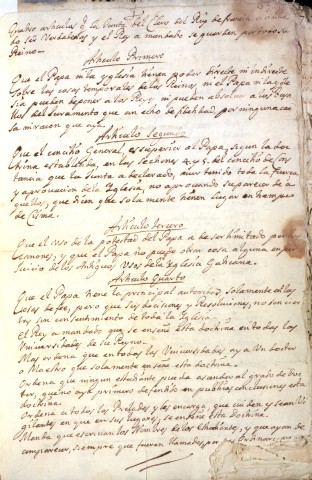 Quatro articulos q̃ la Junta del Clero del Rey de francia
y el Rey a mandado se guarden por todo su
Reino—
Articulo Primero
Que el Papa ni la yglesia tienen poder directo ni indirecto
sobre las cosas temporales de los Reinos, ni el Papa ni la ygle
sia pueden deponer a los Reyes ni pueden absolver a los Vasa
llos del Juramento que an echo de fidelidad, por ninguna cau
sa ni racon que aya.
Articulo Segundo
Que el concilio General, es superior al Papa, segun la doc
trina establecida, en las sectiones 4. y 5. del concilio de Cons
tancia que la Junta a declarado, aver tenido toda la fuerza
y aprovacion de la Iglesia, no aprovando el parecer de a
quellos, que dicen que solamente tienen lugar en tiempo
de Cisma.
Articulo tercero
Que el Uso de la potestad del Papa a de ser limitado por los
Canones, y que el Papa no puede obrar cosa alguna en per
juicio de los Antiguos Usos de la Iglesia Galicana.
Articulo Quarto
Que el Papa tiene la principal autoridad solamente en las
Cosas de fee, pero que sus decisiones y Resoluciones, no son cier
tas sin consentimiento de toda la Iglesia
El Rey a mandado que se enseñe esta doctrina en todas las
Universidades de su Reyno.
Mas ordena que en todas las Universidades ay a Un doctor
o Maestro que solamente enseñe esta doctrina.
Ordena que ningun estudiante pueda ascender al grado de doc
tor, que no aya primero defendido en publicas conclusiones esta
doctrina.
Ordena a todos los Prelados y les encarga, que cuiden y sean Vi
gilantes en que en sus lugares, se enseñe esta Doctrina.
Manda que escrivan los Nombres de los Estudiantes, y que ayan de
comparecer, siempre que fueren llamados, por sus Ordinarios